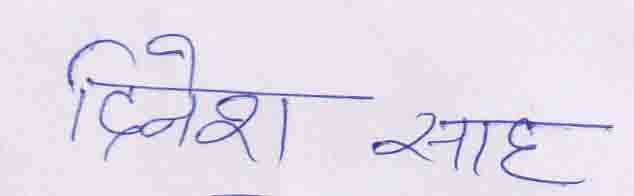 दिनेश साह